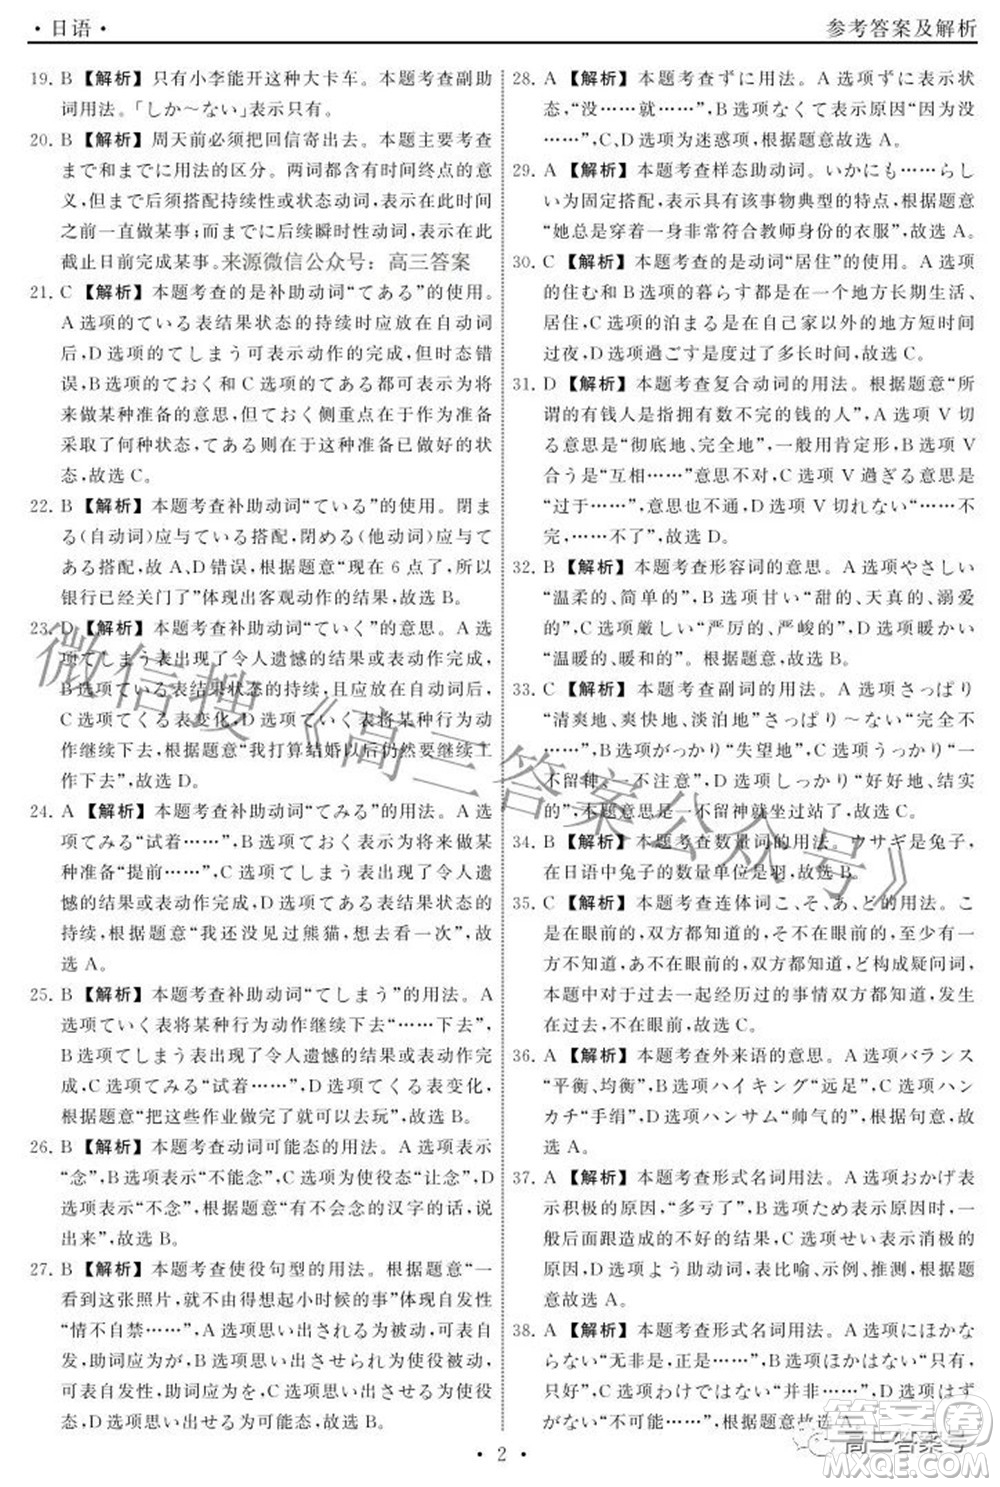 ·日语·
参考答案及解析
19. B 【解析】只有小李能开这种大卡车。本题考查副助
词用法。「しか～ない」表示只有。
20. B 【解析】周天前必须把回信寄出去。本题主要考查
まで与までに用法的区分。两词对应的都是到的意
义,但まで后须搭配持续性或状态动词,表示此时间之
前一直做某事;而までに后续瞬时性动词,表示在此
截止日前完成某事。来源微信公众号：高三答案
21. C 【解析】本题考查的是补助动词“てある”的使用。
A 选项的ている表结果状态的持续时应放在自动词
后,D 选项的てしまう可表示动作的完成,但时态错
误,B 选项的ておく和 C 选项的てある都可表示为将
做某种准备的意思,但ておく侧重点在于作为准备
采取了何种状态,てある则在于这种准备所处的状
态,故选 C。
22. B 【解析】本题考查补助动词“ている”的使用。閉ま
る(自动词)应与ている搭配,閉める(他动词)应与て
ある搭配。故 A、D 错误,根据题意“现在 6 点了,所以
银行已经关门了”体现出客观动作的结果,故选 B。
23. D 【解析】本题考查补助动词“ていく”的意思。A 选
项てしまう表出现了令人遗憾的动作或动作完成,
B 选项ている表结果状态的持续,且应放在自动词后,
C 选项てくる表变化,D 选项ていく表将某种行为动
作继续下去,根据题意“我打算结婚以后仍然要继续工
作下去”,故选 D。
24. A 【解析】本题考查补助动词“てみる”的用法。A 选
项てみる“试着……”,B 选项ておく表示为将来做某
种准备“提前……”,C 选项てしまう表出现了令人遗
憾的动作或动作完成,D 选项ている表结果状态的
持续,根据题意“我还没见过熊猫,想去看一次”,故
选 A。
25. B 【解析】本题考查补助动词“てしまう”的用法。A
选项ていく表将某种行为动作继续下去“……下去”,
B 选项てしまう表出现了令人遗憾的动作或动作完
成,C 选项てみる“试着……”,D 选项てくる表变化,
根据题意“把这些作业做完了就可以去玩”,故选 B。
26. B 【解析】本题考查动词可能态的用法。A 选项表示
“念”,B 选项表示“不能念”,C 选项为使役态“让念”,D
选项表示“不念”,根据题意“有不会念的汉字的话,说
出来”,故选 B。
27. B 【解析】本题考查使役句型的用法。根据题意“一
看到这张照片,就不由得想起小时候的事”体现出
“情不自禁……”,A 选项思い出される为被动,可表自
发,助词应为が,B 选项思い出させられる为使役被动,
可表自发,助词应为を,C 选项思い出させる为使役
态,D 选项思い出せる为可能态,故选 B。
28. A 【解析】本题考查ずに用法。A 选项ずに表示状
态,“没……就……”,B 选项なくて表示原因“因为没
……”,C、D 选项为迷惑项,根据题意故选 A。
29. A 【解析】本题考查样态助动词。いかにも……らし
い为固定搭配,表示具有该事物典型的特点,根据题意
“她总是穿着一身非常符合教师身份的衣服”,故选 A。
30. C 【解析】本题考查的是动词“居住”的使用。A 选项
的住む和 B 选项的暮らす都是在一个地方长期生活、
居住,C 选项的泊まる是在自己家以外的地方短时间
过夜,D 选项過ごす是度过了多长时间,故选 C。
31. D 【解析】本题考查复合动词的用法。根据题意“所
谓的有钱人是指拥有数不完的钱的人”,A 选项 V 切
る意思是“彻底地、完全地”,一般用肯定形,B 选项 V
合う是“互相……”意思不对,C 选项 V 過ぎる意思是
“过于……”,也与题意不符,D 选项 V 切れない“……不
完,……不了”,故选 D。
32. B 【解析】本题考查形容词的意思。A 选项やさしい
“温柔的、简单的”,B 选项甘い“甜的、天真的、溺爱
的”,C 选项厳しい“严厉的、严峻的”,D 选项暖かい
“温暖的、暖和的”。根据题意,故选 B。
33. C 【解析】本题考查副词的用法。A 选项さっぱり
“清爽地、爽快地、淡泊地”さっぱり～ない“根本不
……”,B 选项がっかり“失望地”,C 选项うっかり“一
不留神、一不注意”,D 选项しっかり“好好地、结实
的”根据意思是一不留神就坐过站了,故选 C。
34. B 【解析】本题考查数量词的用法。ウサギ是兔子,
在日语中兔子的数量单位是羽,故选 B。
35. C 【解析】本题考查连体词こ、そ、あ、ど的用法。こ
是在眼前的,双方都知道的,そ不在眼前的,至少有一
方不知道的,あ是不在眼前的,双方都知道的,ど是疑问。
本题中对于过去一起经历过的事情双方都知道,发生
在过去,不在眼前,故选 C。
36. A 【解析】本题考查外来语的意思。A 选项バランス
“平衡、均衡”,B 选项ハイキング“远足”,C 选项ハン
カチ“手绢”,D 选项ハンサム“帅气的”,根据句意,故
选 A。
37. A 【解析】本题考查形式名词用法。A 选项おかげ表
示积极的原因,“多亏了”,B 选项ため表示客观原因,
多造成的不好的结果,C 选项せい表示消极的
原因,D 选项よう助动词,表比喻、示例、推测,根据
题意,故选 A。
38. A 【解析】本题考查形式名词用法。A 选项にほかな
らない“无非是,正是……”,B 选项ほかはない“只有,
只好”,C 选项わけではない“并非……”,D 选项はず
がない“不可能……”,根据题意,故选 A。
· 2 ·
微信搜《高三答案公众号》
高三答案号
答案圈
MXQE.COM